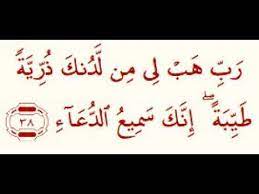 رَبِّ هَبْ لِى مِن لَّدُنكَ ذُرِّيَّةً
طَيِّبَةً ۖ إِنَّكَ سَمِيعُ ٱلدُّعَآءِ ٣٨